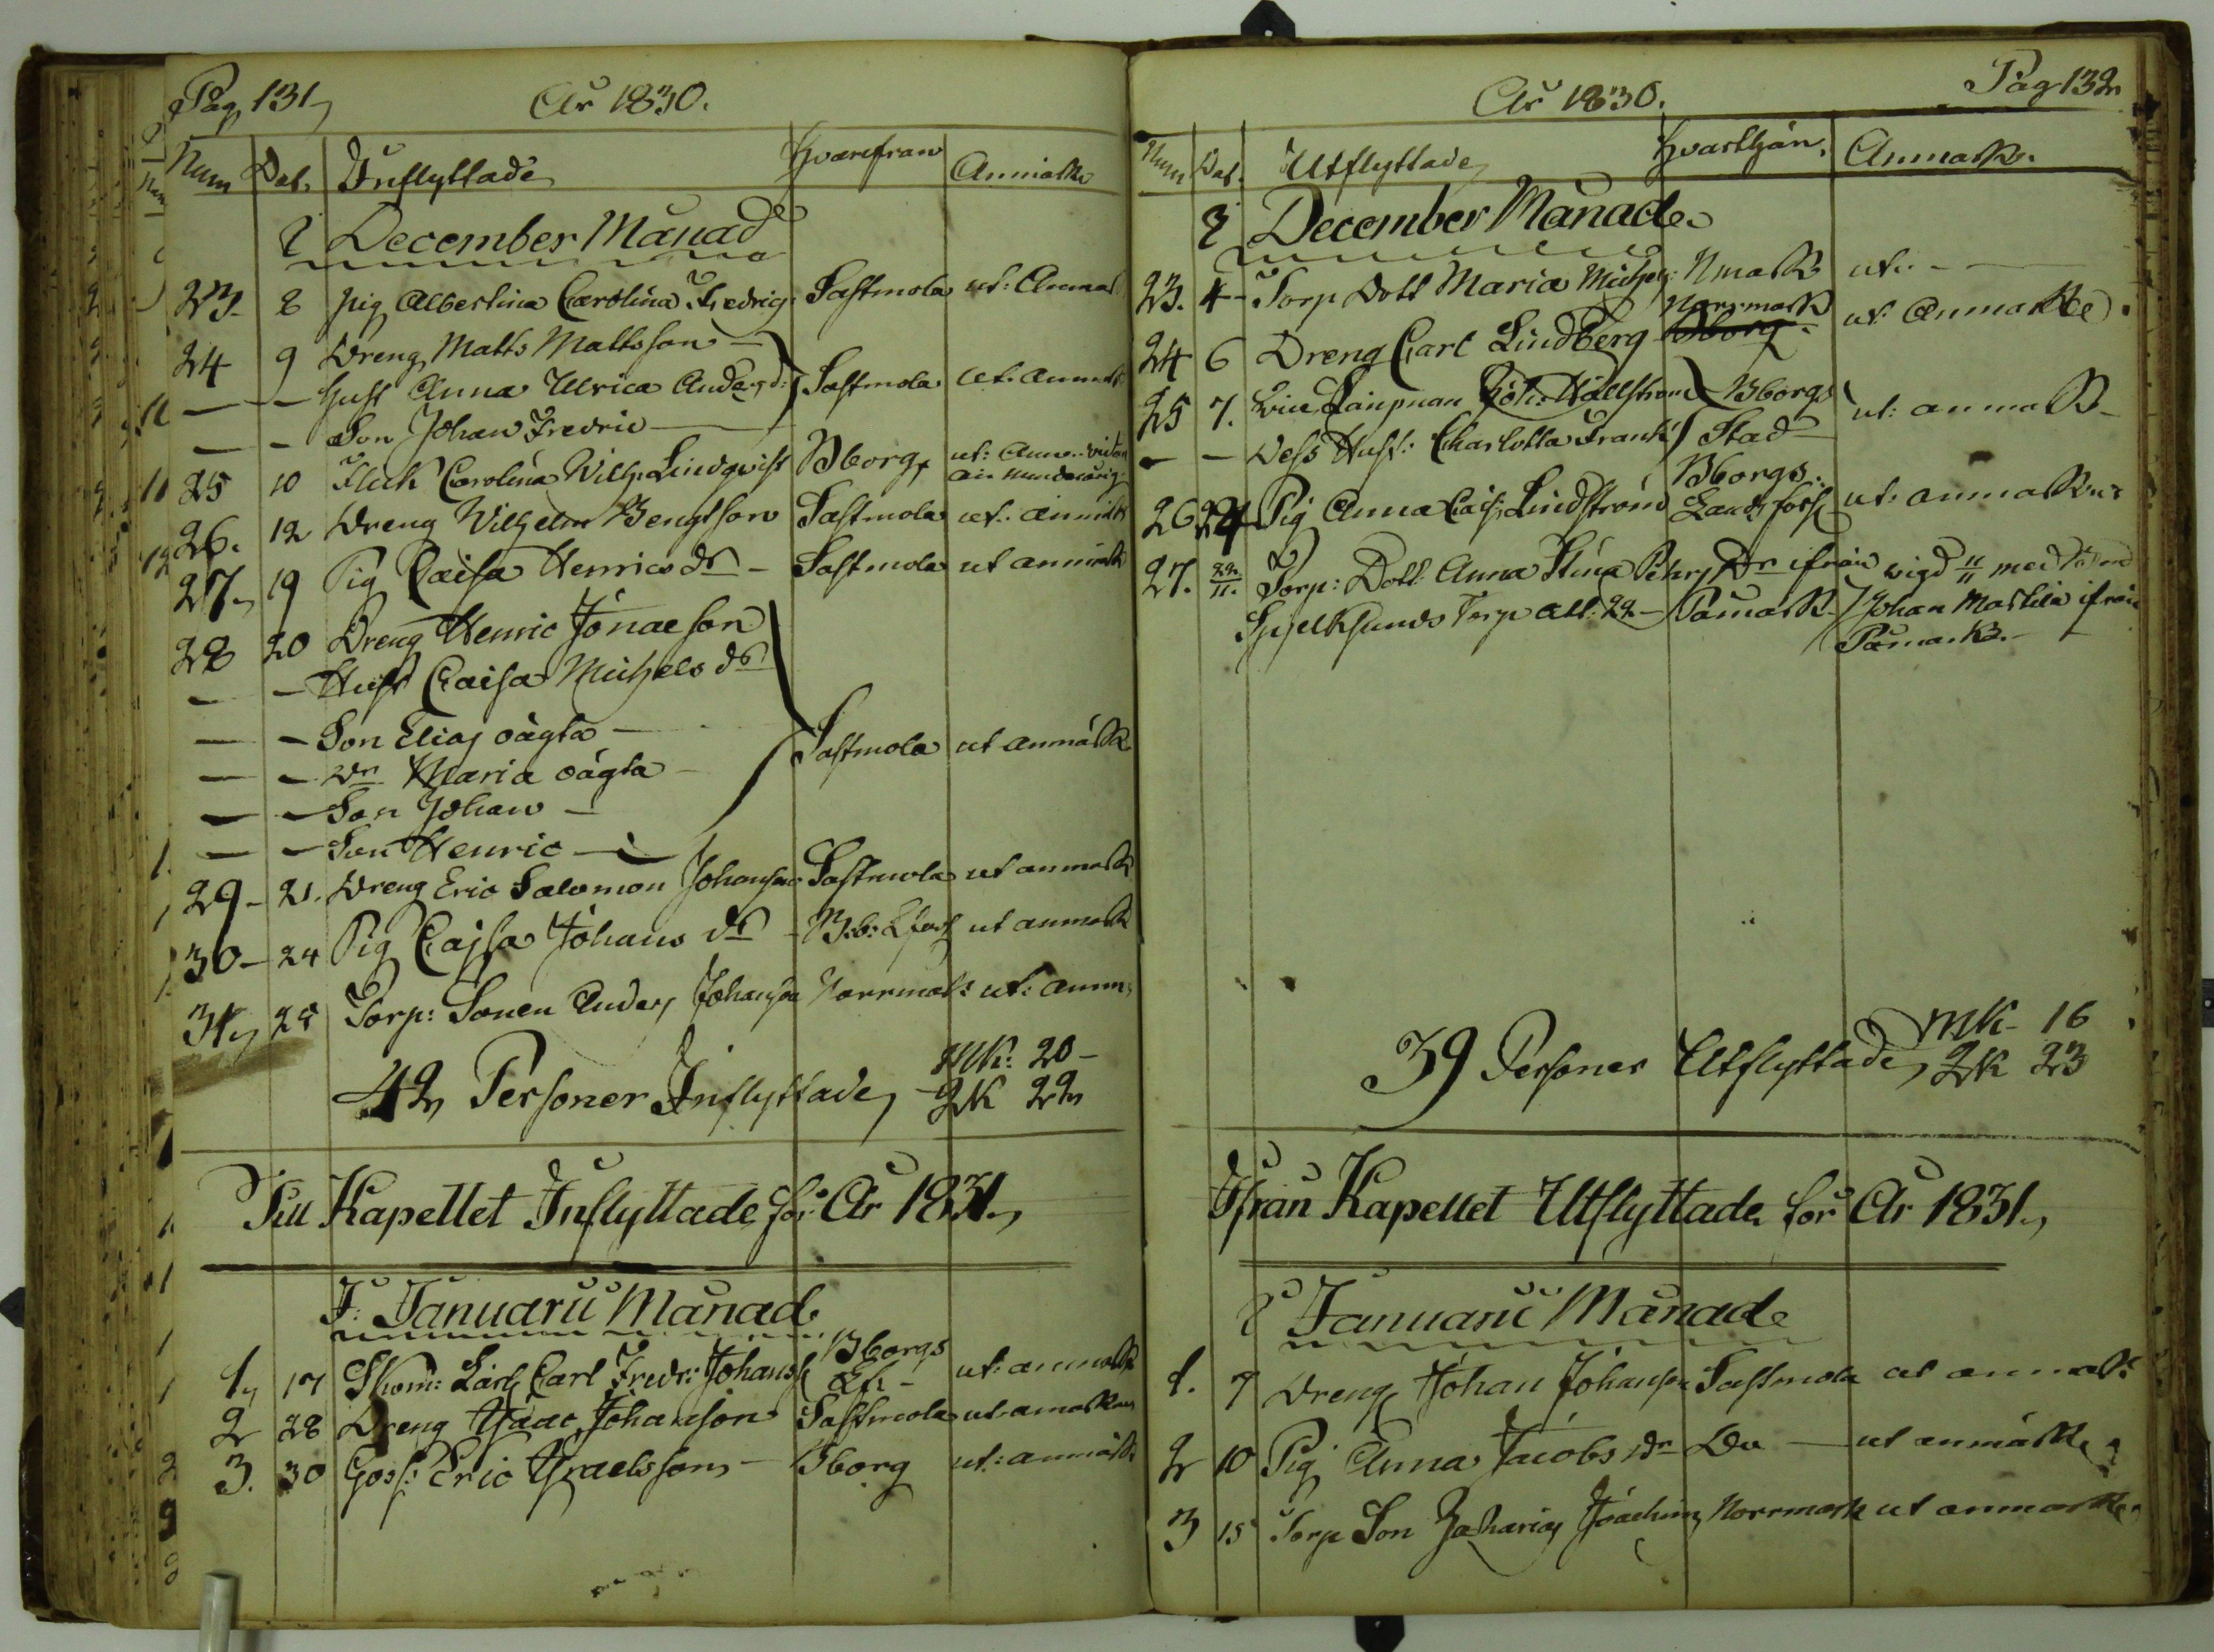 Pag 131
År 1830.
Num Dat. Inflyttade Hvarifrån Anmärk
I December Månad
23. 8 Pig Albertina Carolina Fredrics Sastmola ut: Anmärk
24 9 Dreng Matts Mattsson
— — Hust Anna Ulrica Andersd: Sastmola ut. anmärk
— — Son Johan Fredric
25 10 Flick Carolina Wilh: Lindqvist Bborg ut: Anm. vidare
är minderårig
26. 12 Dreng Wilhelm Bengtson Sastmola ut. anmärk
27 19 Pig Caisa Henrics dr Sastmola ut anmärk
28 20 Dreng Henric Jonaeson
— — Hust Caisa Michels dr
— — Son Elias oägta Sastmola ut anmärk
— — Dr Maria oägta
— — Son Johan
— — Son Henric
29 21. Dreng Eric Salomon Johanson Sastmola ut anmärk
30 24 Pig Cajsa Johans dr B:b: Lfors ut anmärk
31 28 Torp: Sonen Anders Johanson Norrmark ut: anm
42 Personer Inflyttade MK: 20
QK 22
Till Kapellet Inflyttade för År 1831.
I: Januarii Månad
1 17 Skom: Lärl Carl Fredr: Johanss Bborgs ut: anmärk
2 28 Dreng Isaac Johanson Sastmola ut. anmärkn
3. 30 Goss: Eric Israelsson Bborg ut: anmärk
År 1830. Pag 132
Num Dat. Utflyttade Hvarthän. Anmärk.
I December Månad
23. 4 Torp Dott Maria Michels: Nmark ut:
24 6 Dreng Carl Lindberg Norrmark ut: Anmärk
25 7. Vice Länsman Hällström Bborgs ut: anmärk
— — Dess Hust: Charlotta Franck Stad
26 24 Pig Anna Cais: Lindström Bborgs Lands förs ut: anmärkn
27. 22/11. Torp: Dott: Anna Stina Pehrs Dr ifrån vigd 11/11 med
Torp att: 22 Påmark Johan Mattila ifrån
Påmark.
39 Personer Utflyttade MK 16
QK 23
Ifrån Kapellet Utflyttade för År 1831.
I Januarii Månad
1. 7 Dreng Johan Johanson Sastmola ut anmärk
2 10 Pig Anna Jacobs dr Do ut anmärk
3 15 Torp Son Zacharias Joachims Norrmark ut anmärk